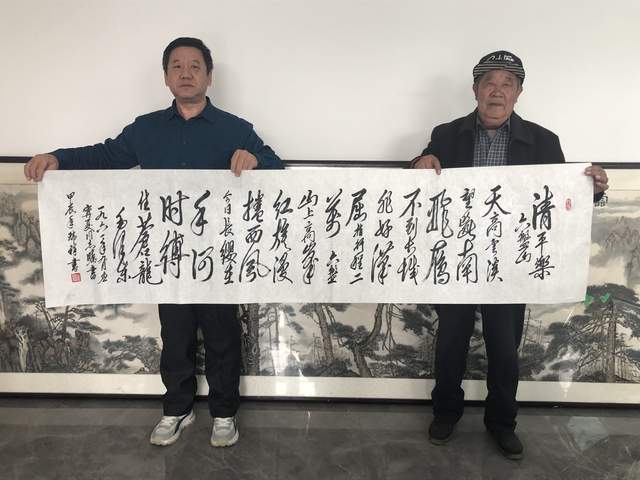 清平樂
六盤山
天高雲淡
望斷南
飛雁
不到長城
非好漢
屈指行程二
萬 六盤
山上高峯
紅旗漫
捲西風
今日長纓在
手何
时縛
住蒼龍
毛澤東
一九六一年九月应
寧夏同志嘱書
甲辰年書